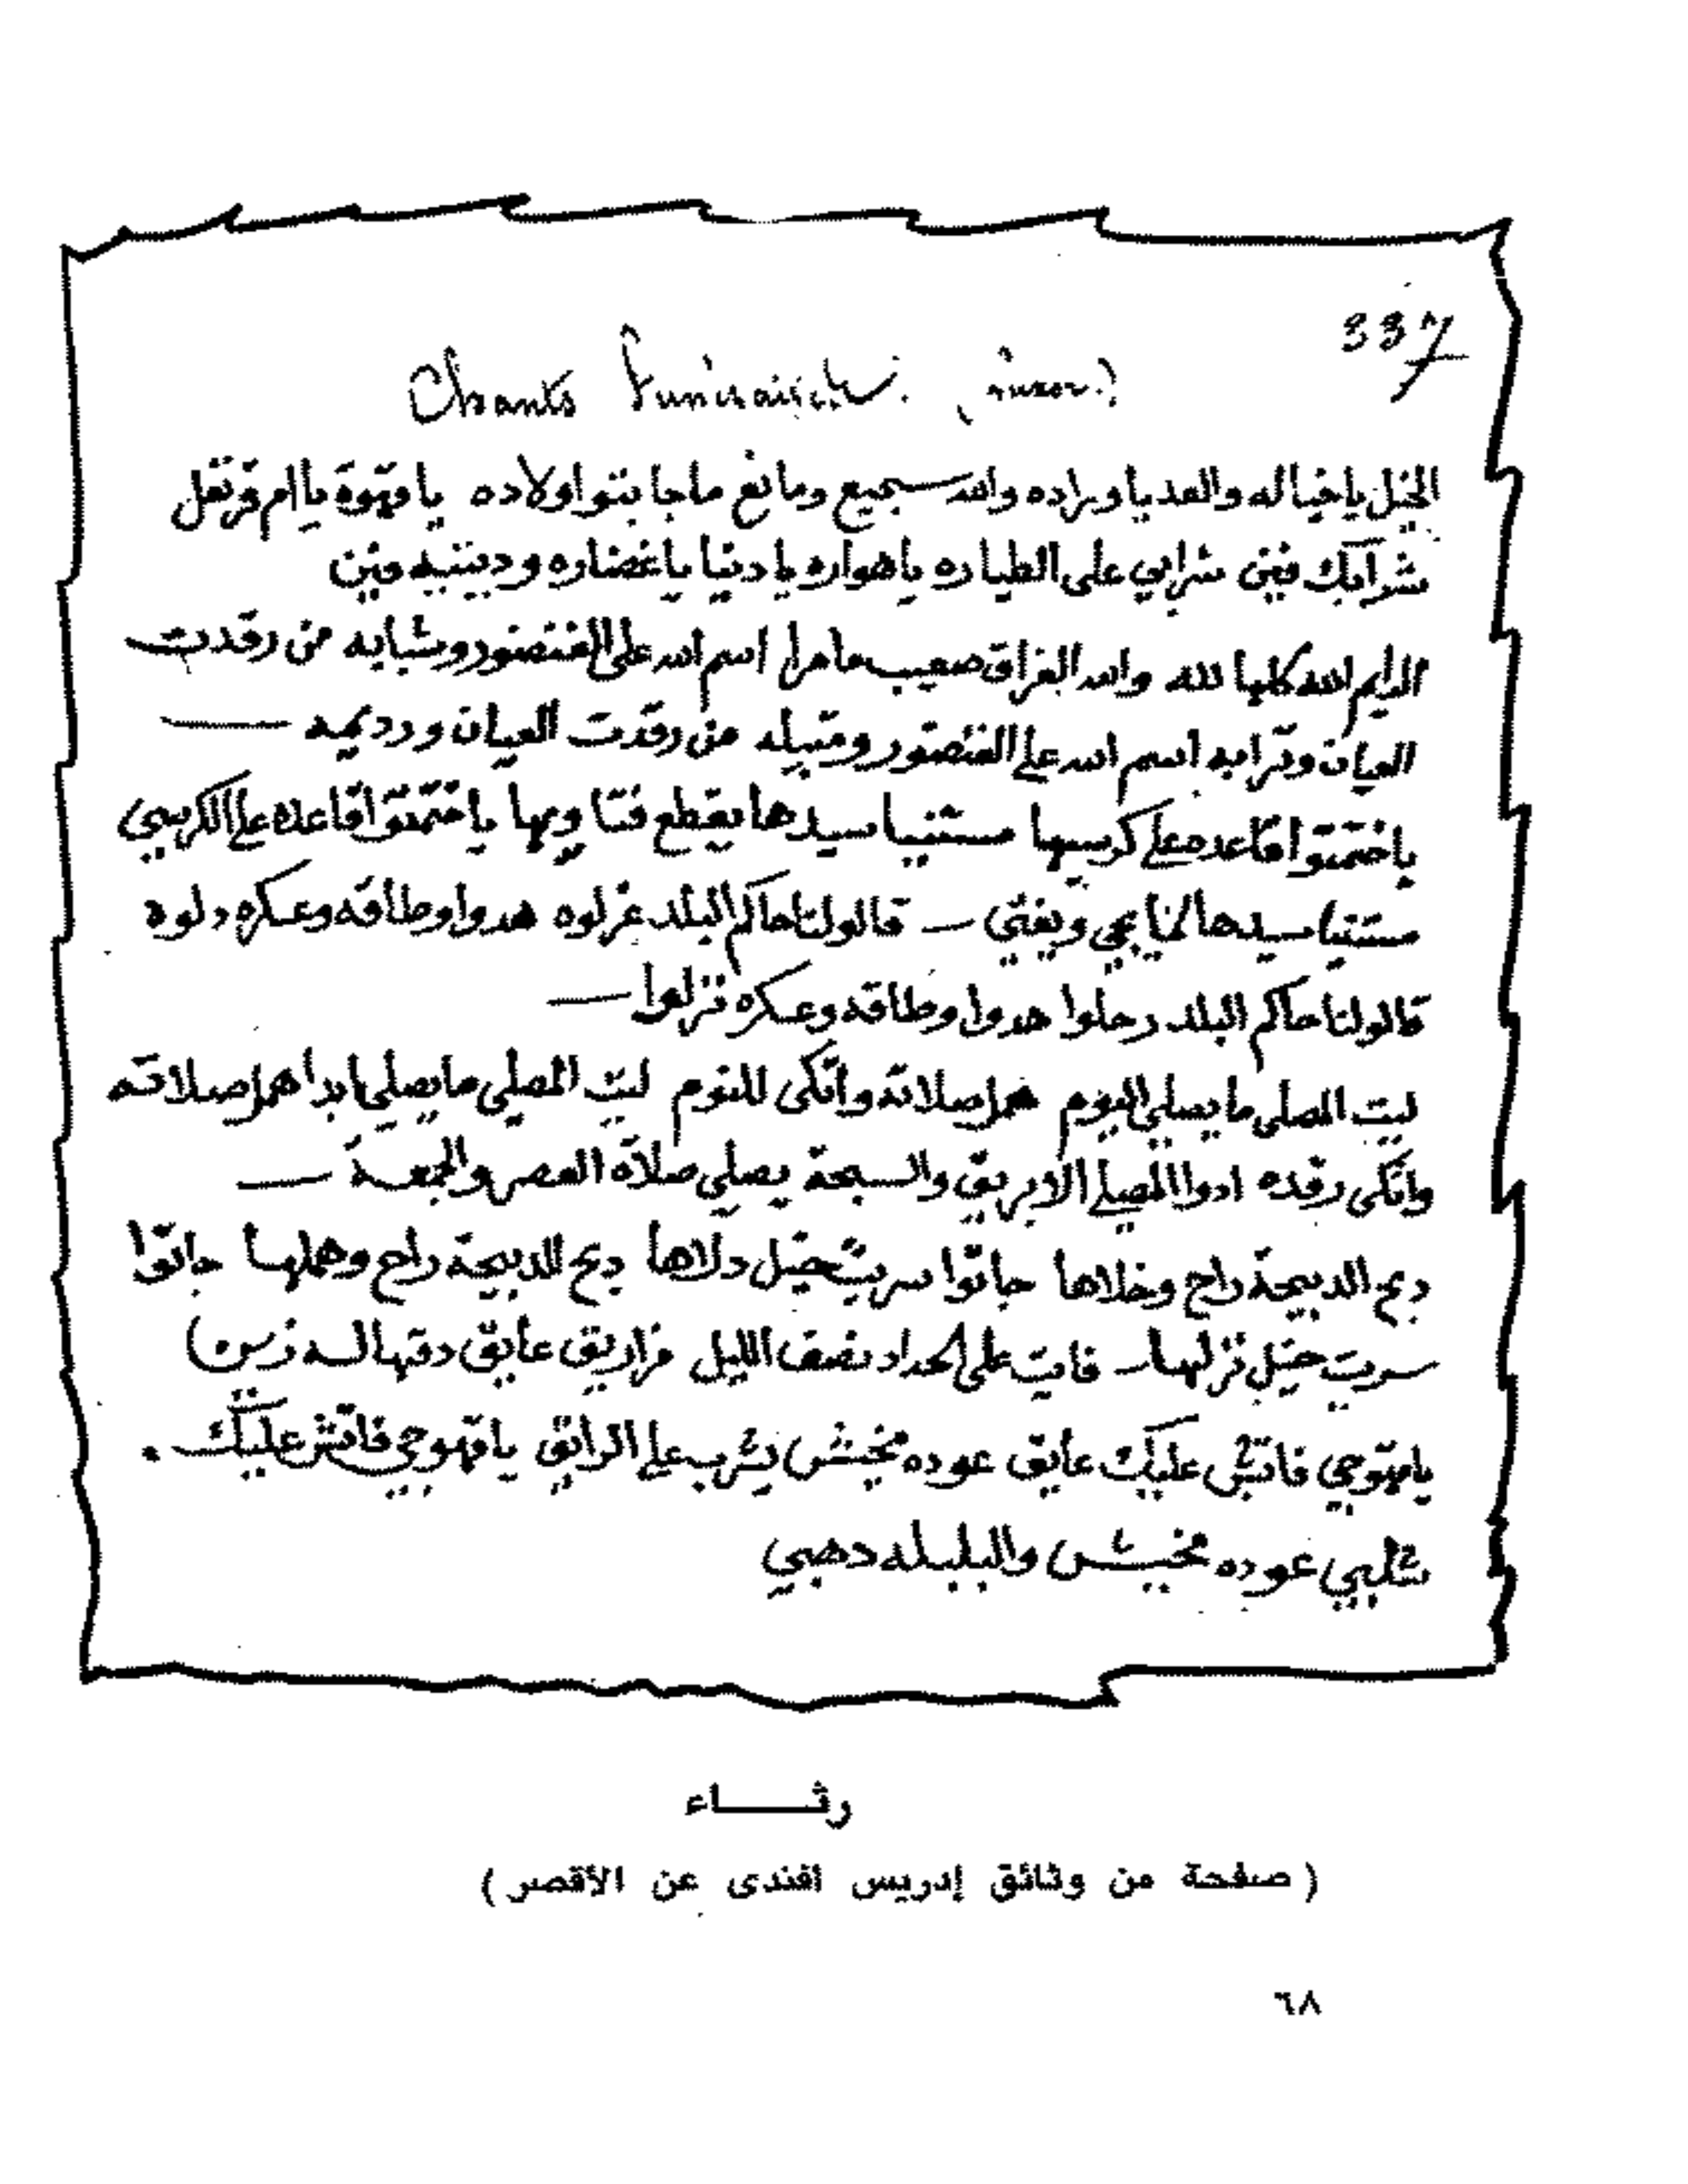 337
Chants Funéraires. (Luxor.)
الخيل يا خياله والعد يا وراده والله سجيع وما نع ما جابتوا ولاده يا قهوة يا ام قرنفل
شرابك فين شرابي على الطياره يا هواره يا دنيا يا غضاره ودبتيه فين
الدايم الله كلها لله والله الفراق صعيب ما هرا اسم الله على الغنضور وشبابه من رقدت
العيان وترابه اسم الله على الغنضور وقبيله من رقدت العيان ورديمه
يا ختمتوا قاعده على كرسيها مستنيا سيدها يقطع فتاويها يا ختمتوا قاعده على الكرسي
مستنيا سيدها لمنا يجي ويفتي – قالولنا حاكم البلد عزلوه هدوا وطاقه وعسكره دلوه
قالولنا حاكم البلد رحلوا هدوا وطاقه وعسكره نزلوا –
ليت المصلى ما يصلي اليوم همل صلاته واتكى للنوم ليت المصلي ما يصلي ابدا همل صلاته
واتكى رقده ادوا المصلي الابريق والسبحة يصلي صلاة العصر والجمعة –
دبح الدبيحة راح وخلاها جاتوا سريت خيل دلاها دبح الدبيحة راح وهملها جاتوا
سريت خيل نزلها – فايت على الحداد نصف الليل مزاريق عايق دقها له زين
يا قهوجي فاتش عليك عايق عوده مخيش يشرب على الرايق يا قهوجي فاتش عليك .
شلبي عوده مخيش والبلبله دهبي
رثـــاء
( صفحة من وثائق إدريس افندى عن الاقصر )
٦٨